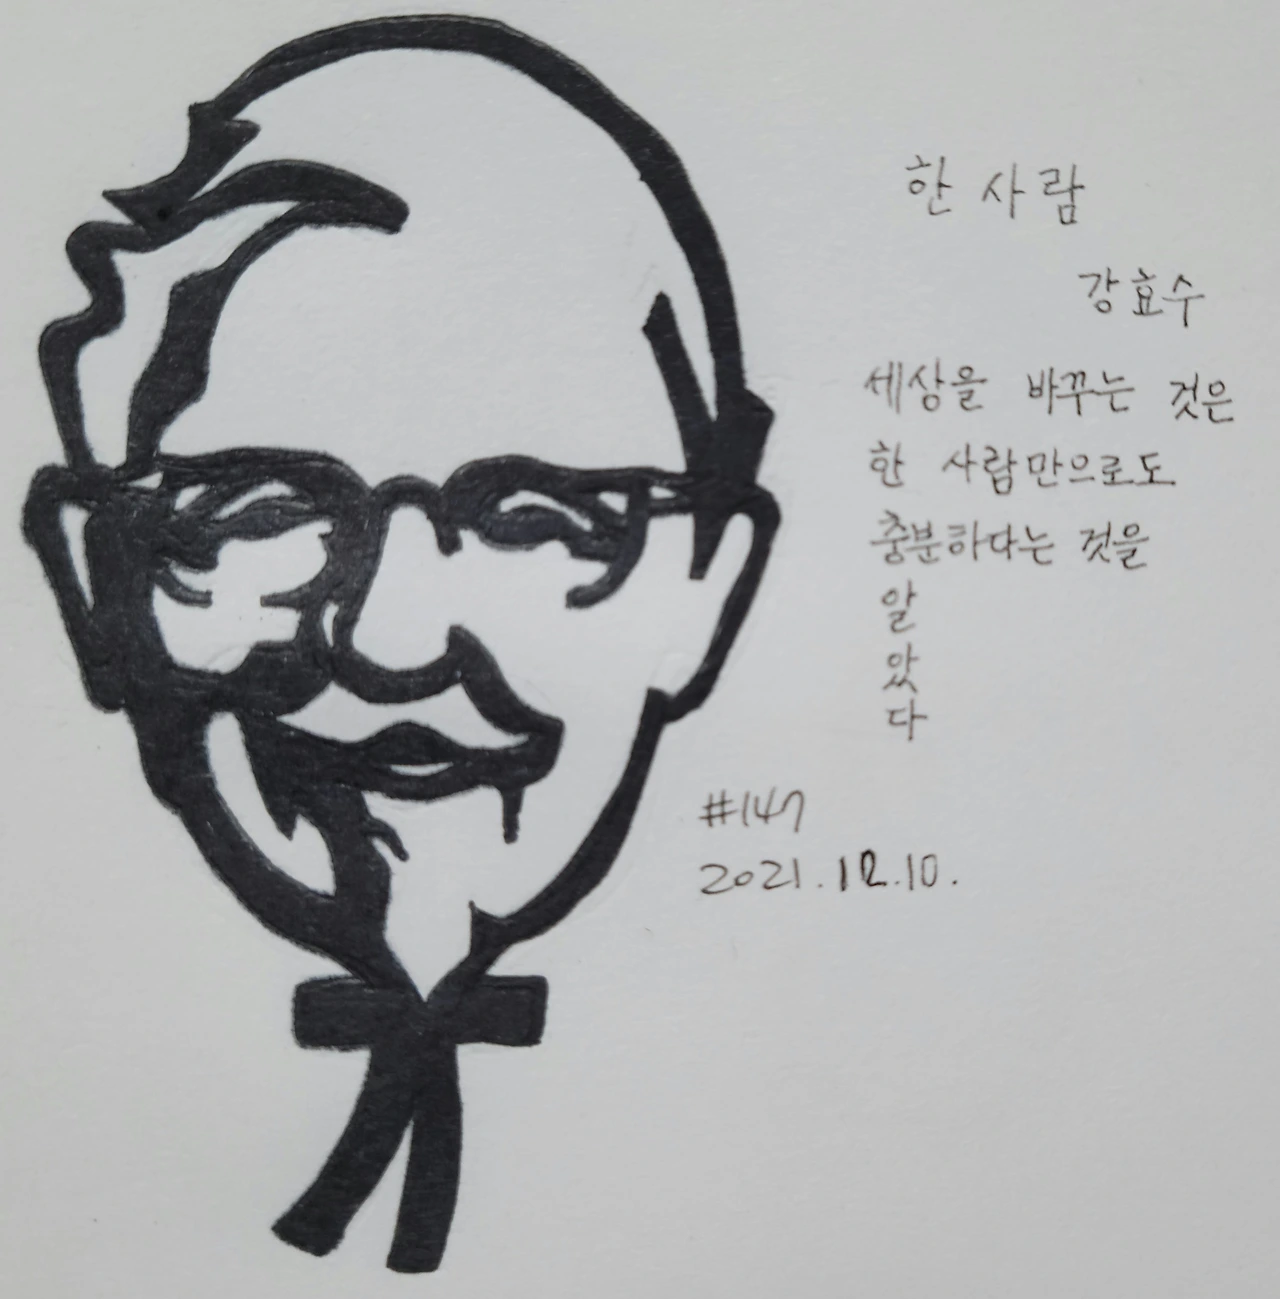 한 사람
강효수
세상을 바꾸는 것은
한 사람만으로도
충분하다는 것을
알
았
다
#147
2021.12.10.